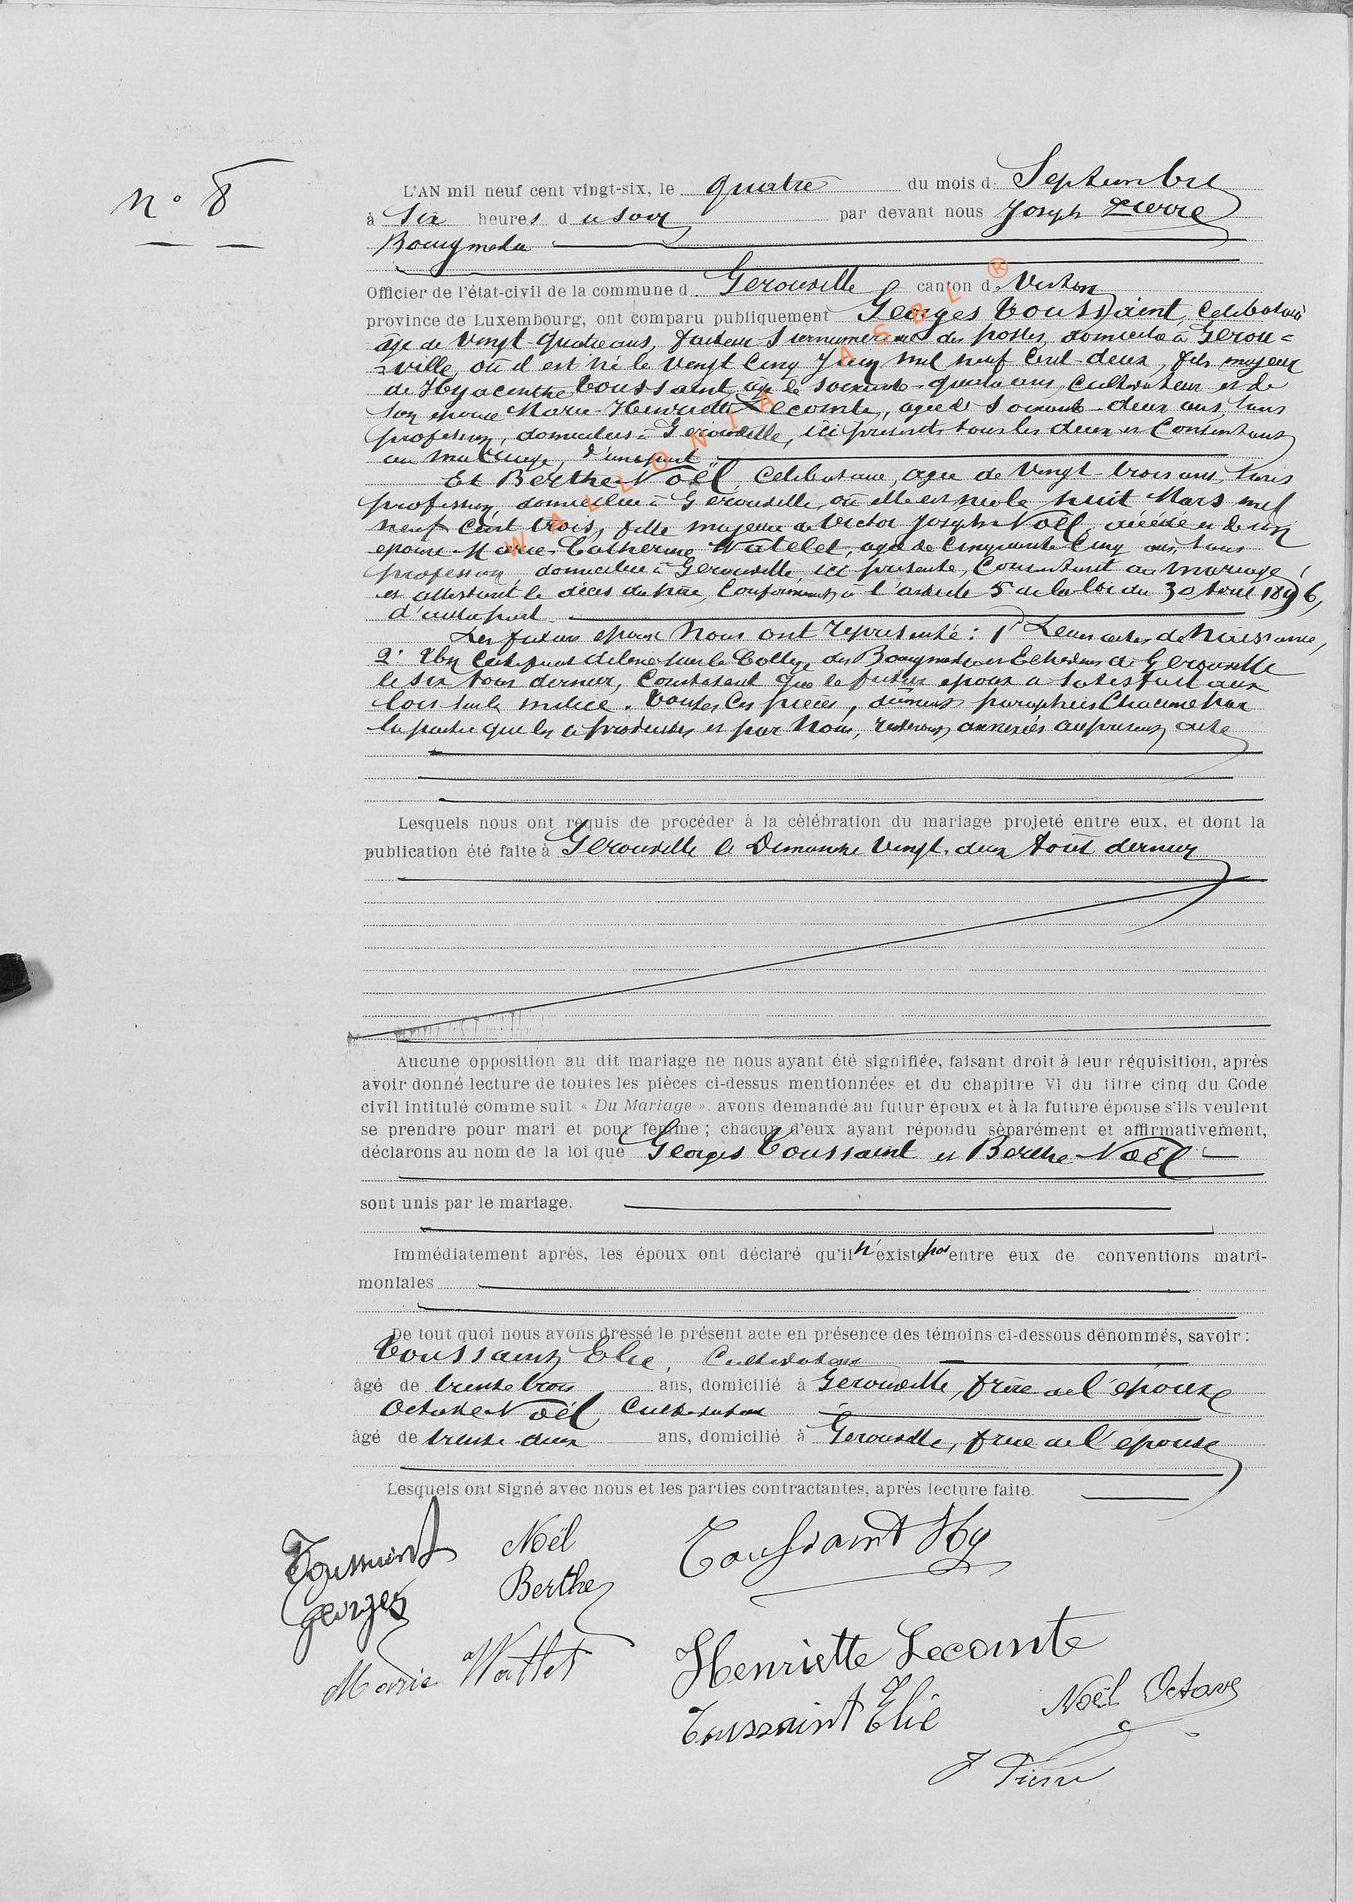 n° 8
L'AN mil neuf cent vingt-six, le quatre du mois d. Septembre
à six heures du soir par devant nous Joseph Pierre
Bourgmestre
Officier de l'état-civil de la commune d. Gérouville canton d. Virton
province de Luxembourg, ont comparu publiquement Georges Toussaint, Célibataire
âgé de vingt-quatre ans, facteur surnuméraire des postes, domicilié à Gérou=
=ville, où il est né le vingt cinq Juin mil neuf cent-deux, fils majeur
de Hyacinthe Toussaint, âgé de soixante-quatre ans, Cultivateur, et de
son épouse Marie-Henriette Lecomte, agée de soixante-deux ans, sans
profession, domiciliés à Gérouville, ici présents tous les deux et Consentant
au mariage, d'une part
Et Berthe Noël, Célibataire, agée de vingt-trois ans, sans
profession, domiciliée à Gérouville, où elle est née le huit Mars mil
neuf cent trois, fille majeure de Victor Joseph Noël, décédé et de son
épouse Marie-Catherine Watelet, agée de Cinquante Cinq ans, sans
profession, domiciliée à Gérouville, ici présente, Consentant au mariage
et attestant le décès du père, Conformément à l'article 5 de la loi du 30 Avril 1896,
d'autre part.
Les futurs époux Nous ont représenté : 1° Leurs actes de Naissance,
2° Un Certificat délivré par le Collège des Bourgmestre et Echevins de Gérouville
le six Août dernier, Constatant que le futur époux a satisfait aux
lois sur la milice. Toutes ces pièces, dûment paraphées Chacune par
la partie qui les a produites et par Nous, resteront annexées au présent acte
Lesquels nous ont requis de procéder à la célébration du mariage projeté entre eux, et dont la
publication été faite à Gérouville le Dimanche vingt-deux Août dernier
Aucune opposition au dit mariage ne nous ayant été signifiée, faisant droit à leur réquisition, après
avoir donné lecture de toutes les pièces ci-dessus mentionnées et du chapitre VI du titre cinq du Code
civil intitulé comme suit « Du Mariage », avons demandé au futur époux et à la future épouse s'ils veulent
se prendre pour mari et pour femme ; chacun d'eux ayant répondu séparément et affirmativement,
déclarons au nom de la loi que Georges Toussaint et Berthe Noël
sont unis par le mariage.
Immédiatement après, les époux ont déclaré qu'il n'existe pas entre eux de conventions matri-
moniales
De tout quoi nous avons dressé le présent acte en présence des témoins ci-dessous dénommés, savoir :
Toussaint Elie, Cultivateur
âgé de trente trois ans, domicilié à Gérouville, frère de l'époux
Octave Noël, Cultivateur
âgé de trente-deux ans, domicilié à Gérouville, frère de l'épouse
Lesquels ont signé avec nous et les parties contractantes, après lecture faite.
Toussaint Noël Toussaint Hy
Georges Berthe
Marie Wattlet Henriette Lecomte
Toussaint Elie Noël Octave
J Pierre
WALLONIA ASBL ®